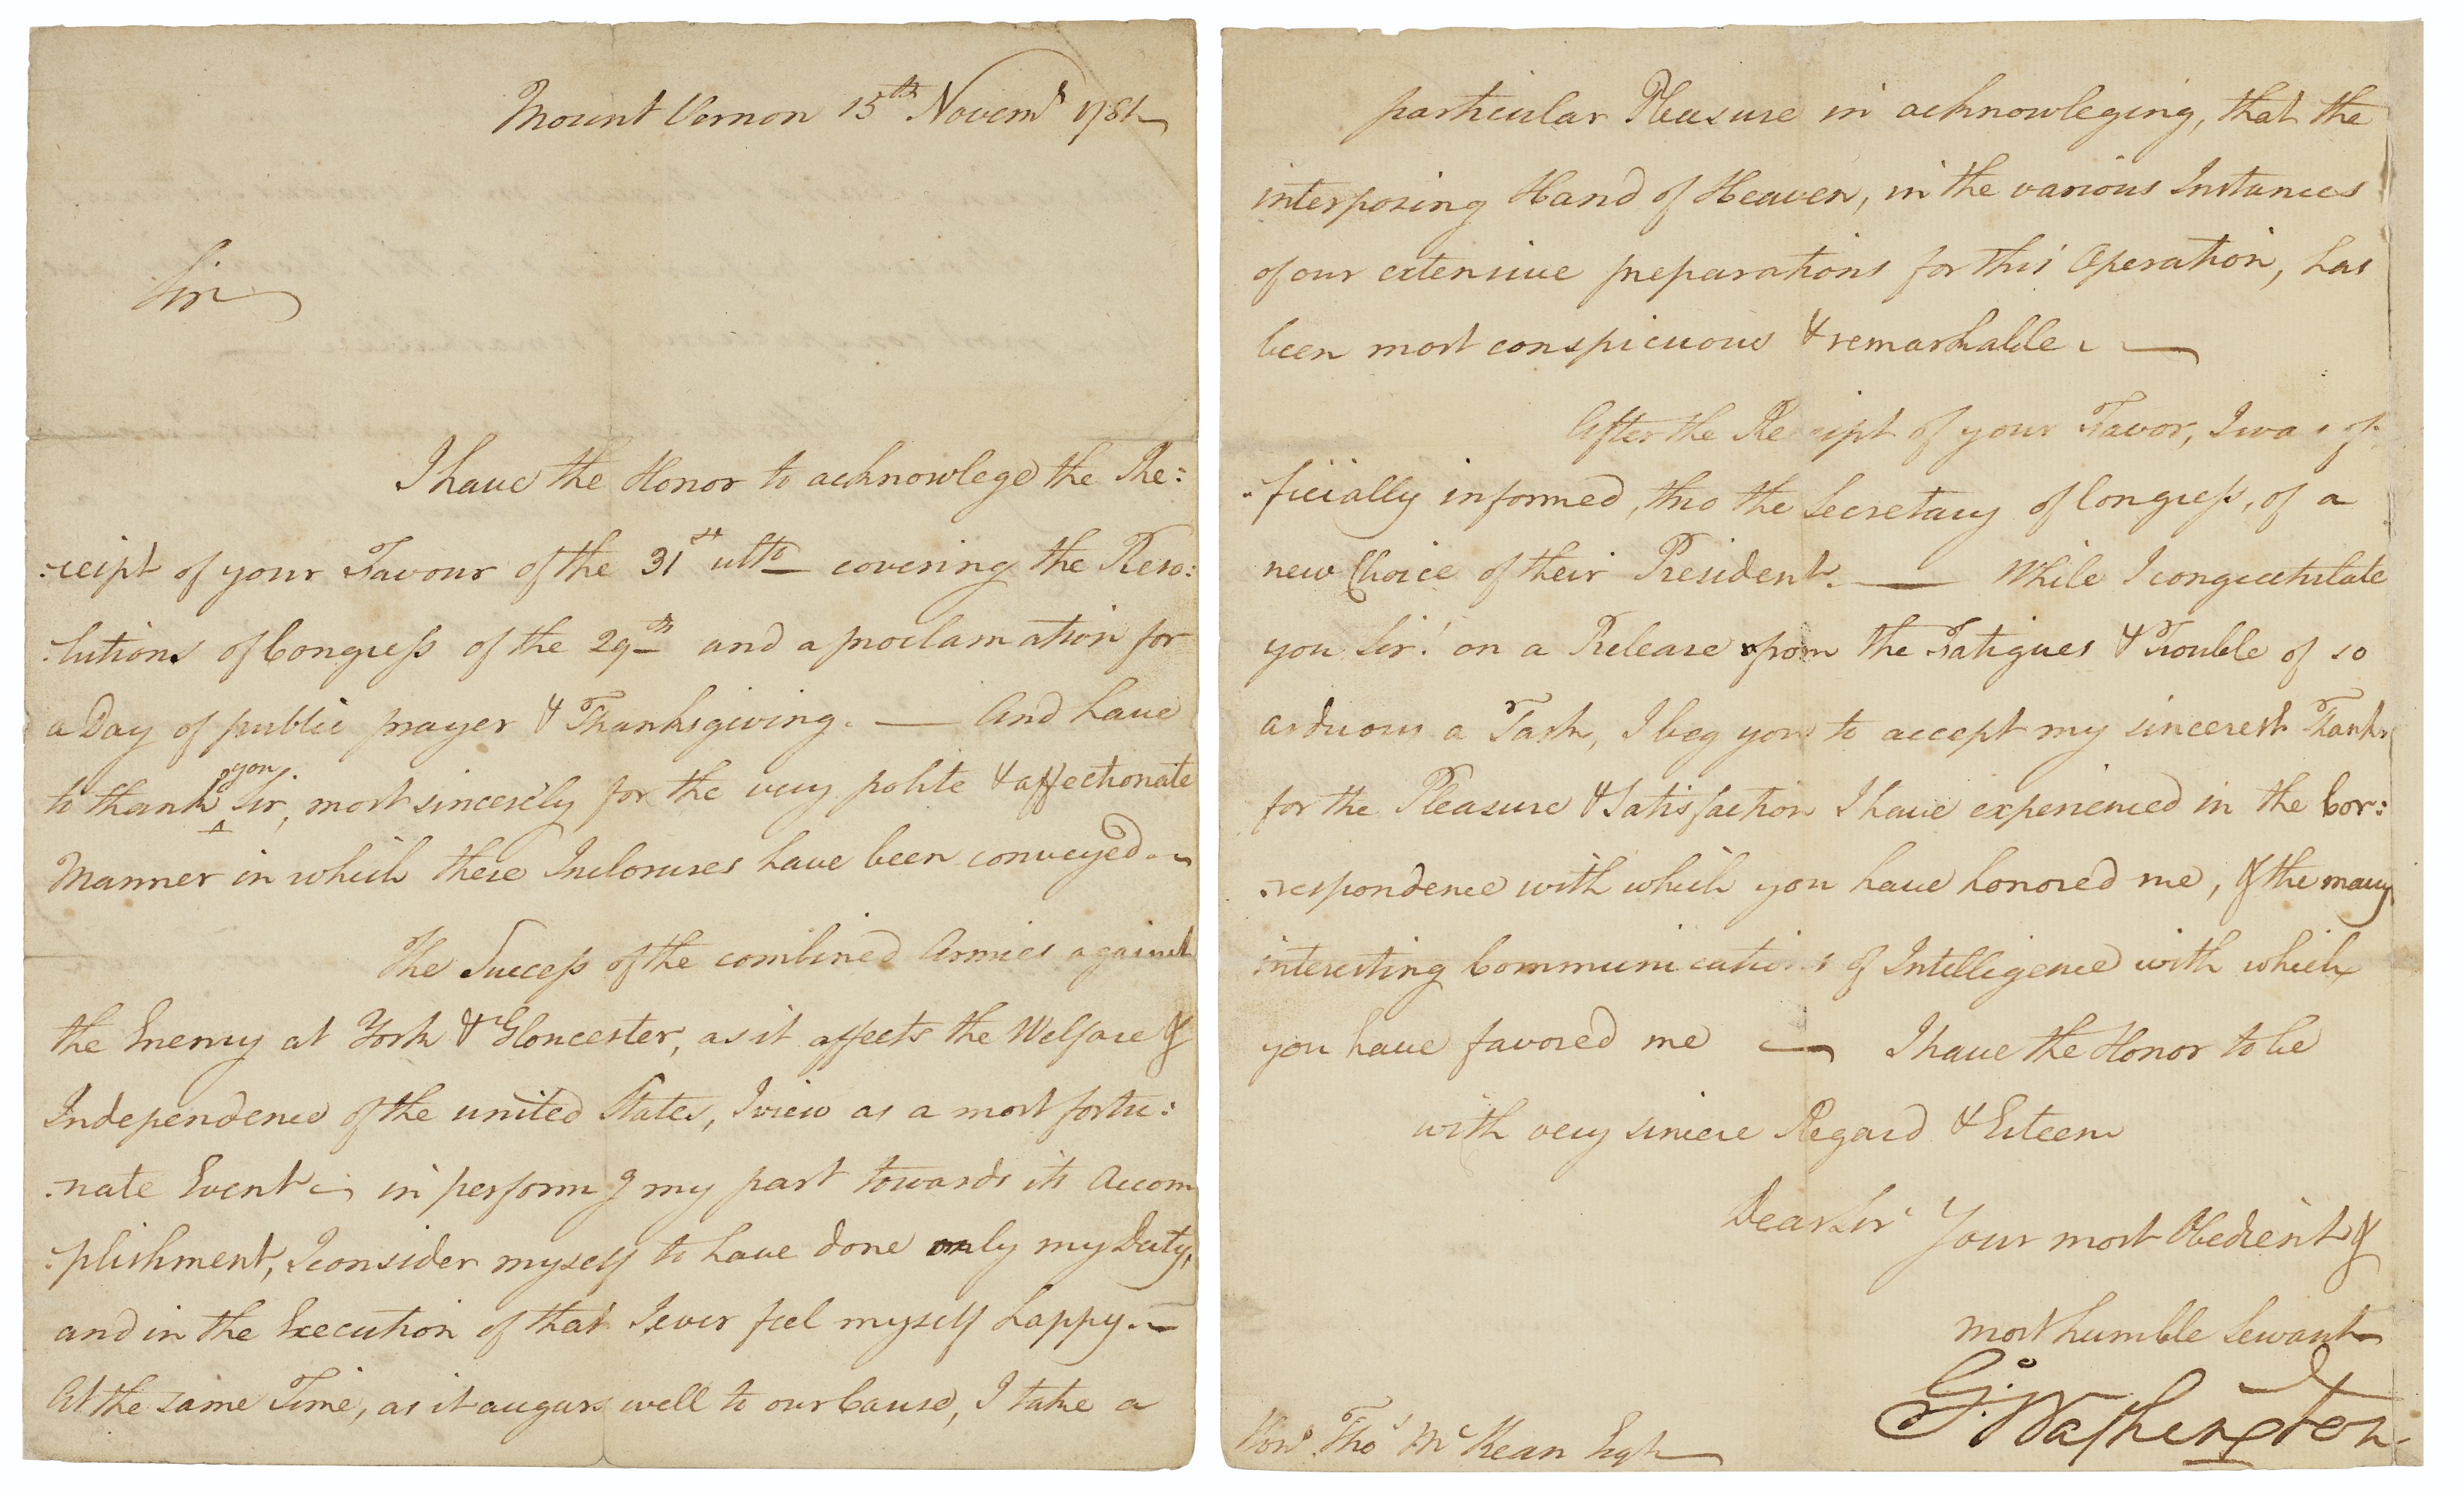 Mount Vernon 15th Novemr 1781
Sir
I have the Honor to acknowlege the Re:
:ceipt of your Favour of the 31st ulto covering the Reso:
:lutions of Congress of the 29th and a proclamation for
a Day of public prayer & Thanksgiving. — And have
to thank you Sir, most sincerely for the very polite & affectionate
Manner in which these Inclosures have been conveyed.
The Success of the combined Armies against
the Enemy at York & Gloucester, as it affects the Welfare &
Independence of the united States, I view as a most fortu:
:nate Event — in performg my part towards its Accom
:plishment, I consider myself to have done only my Duty,
and in the Execution of that I ever feel myself happy. —
At the same Time, as it augurs well to our Cause, I take a
particular Pleasure in acknowleging, that the
interposing Hand of Heaven, in the various Instances
of our extensive preparations for this Operation, has
been most conspicuous & remarkable. —
After the Receipt of your Favor, I was of
:ficially informed, thro the Secretary of Congress, of a
new Choice of their President. — While I congratulate
you Sir! on a Release from the Fatigues & Trouble of so
arduous a Task, I beg you to accept my sincerest Tanks
for the Pleasure & Satisfaction I have experienced in the Cor:
:respondence with which you have honored me, & the many
interesting Communications of Intelligence with which
you have favored me — I have the Honor to be
with very sincere Regard & Esteem
Dear Sir Your most Obedient &
most humble Servant
Go: Washington
Honl Thos McKean Esqr